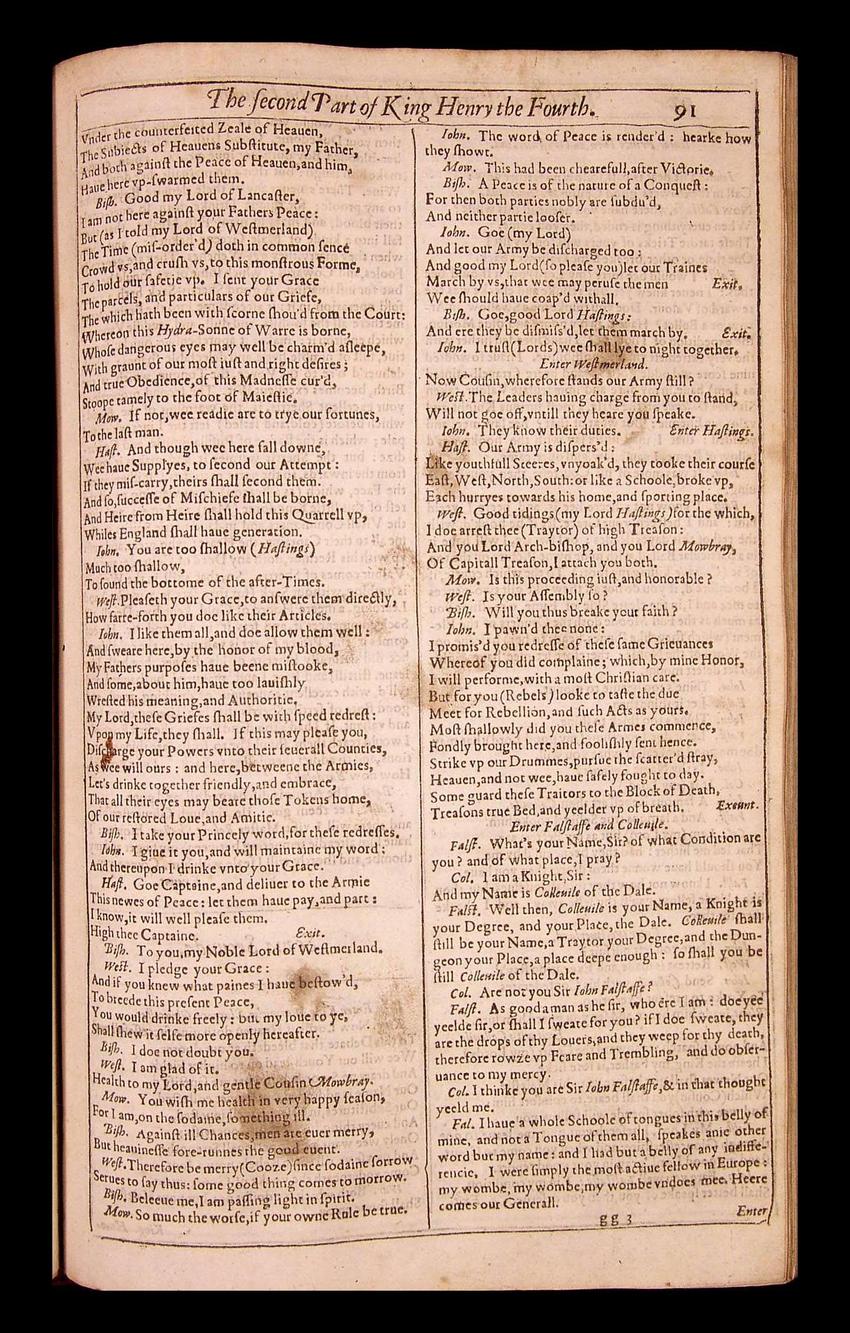 The ſecond Part of King Henry the Fourth. 91
Vnder the counterfeited Zeale of Heauen,
The Subiects of Heauens Subſtitute, my Father,
And both againſt the Peace of Heauen,and him,
Haue here vp-ſwarmed them.
Biſh. Good my Lord of Lancaſter,
I am not here againſt your Fathers Peace:
But (as I told my Lord of Weſtmerland)
The Time (miſ-order'd) doth in common ſence
Crowd vs,and cruſh vs,to this monſtrous Forme,
To hold our ſafetie vp. I ſent your Grace
The parcels, and particulars of our Griefe,
The which hath been with ſcorne ſhou'd from the Court:
Whereon this Hydra-Sonne of Warre is borne,
Whoſe dangerous eyes may well be charm'd aſleepe,
With graunt of our moſt iuſt and right deſires;
And true Obedience,of this Madneſſe cur'd,
Stoope tamely to the foot of Maieſtie.
Mow. If not,wee readie are to trye our fortunes,
To the laſt man.
Haſt. And though wee here fall downe,
Wee haue Supplyes, to ſecond our Attempt:
If they miſ-carry,theirs ſhall ſecond them.
And ſo,ſucceſſe of Miſchiefe ſhall be borne,
And Heire from Heire ſhall hold this Quarrell vp,
Whiles England ſhall haue generation.
Iohn. You are too ſhallow (Haſtings)
Much too ſhallow,
To ſound the bottome of the after-Times.
Weſt.Pleaſeth your Grace,to anſwere them directly,
How farre-forth you doe like their Articles.
Iohn. I like them all,and doe allow them well:
And ſweare here,by the honor of my blood,
My Fathers purpoſes haue beene miſtooke,
And ſome,about him,haue too lauiſhly
Wreſted his meaning,and Authoritie.
My Lord,theſe Griefes ſhall be with ſpeed redreſt:
Vpon my Life,they ſhall. If this may pleaſe you,
Diſcharge your Powers vnto their ſeuerall Counties,
As wee will ours: and here,betweene the Armies,
Let's drinke together friendly,and embrace,
That all their eyes may beare thoſe Tokens home,
Of our reſtored Loue,and Amitie.
Biſh. I take your Princely word,for theſe redreſſes.
Iohn. I giue it you,and will maintaine my word:
And thereupon I drinke vnto your Grace.
Haſt. Goe Captaine,and deliuer to the Armie
This newes of Peace: let them haue pay,and part:
I know,it will well pleaſe them.
High thee Captaine. Exit.
Biſh. To you,my Noble Lord of Weſtmerland.
Weſt. I pledge your Grace:
And if you knew what paines I haue beſtow'd,
To breede this preſent Peace,
You would drinke freely: but my loue to ye,
Shall ſhew it ſelfe more openly hereafter.
Biſh. I doe not doubt you.
Weſt. I am glad of it.
Health to my Lord,and gentle Couſin Mowbray.
Mow. You wiſh me health in very happy ſeaſon,
For I am,on the ſodaine,ſomething ill.
Biſh. Againſt ill Chances,men are euer merry,
But heauineſſe fore-runnes the good euent.
Weſt.Therefore be merry(Cooze)ſince ſodaine ſorrow
Serues to ſay thus: ſome good thing comes to morrow.
Biſh. Beleeue me,I am paſſing light in ſpirit.
Mow. So much the worſe,if your owne Rule be true.
Iohn. The word of Peace is render'd: hearke how
they ſhowt.
Mow. This had been chearefull,after Victorie.
Biſh. A Peace is of the nature of a Conqueſt:
For then both parties nobly are ſubdu'd,
And neither partie looſer.
Iohn. Goe (my Lord)
And let our Army be diſcharged too:
And good my Lord(ſo pleaſe you)let our Traines
March by vs,that wee may peruſe the men Exit.
Wee ſhould haue coap'd withall.
Biſh. Goe,good Lord Haſtings:
And ere they be diſmiſs'd,let them march by. Exit.
Iohn. I truſt(Lords)wee ſhall lye to night together.
Enter Weſtmerland.
Now Couſin,wherefore ſtands our Army ſtill?
Weſt.The Leaders hauing charge from you to ſtand,
Will not goe off,vntill they heare you ſpeake.
Iohn. They know their duties. Enter Haſtings.
Haſt. Our Army is diſpers'd:
Like youthfull Steeres,vnyoak'd, they tooke their courſe
Eaſt,Weſt,North,South:or like a Schoole,broke vp,
Each hurryes towards his home,and ſporting place.
Weſt. Good tidings(my Lord Haſtings)for the which,
I doe arreſt thee(Traytor) of high Treaſon:
And you Lord Arch-biſhop, and you Lord Mowbray,
Of Capitall Treaſon,I attach you both.
Mow. Is this proceeding iuſt,and honorable?
Weſt. Is your Aſſembly ſo?
Biſh. Will you thus breake your faith?
Iohn. I pawn'd thee none:
I promis'd you redreſſe of theſe ſame Grieuances
Whereof you did complaine; which,by mine Honor,
I will performe,with a moſt Chriſtian care.
But for you(Rebels)looke to taſte the due
Meet for Rebellion,and ſuch Acts as yours.
Moſt ſhallowly did you theſe Armes commence,
Fondly brought here,and fooliſhly ſent hence.
Strike vp our Drummes,purſue the ſcatter'd ſtray,
Heauen,and not wee,haue ſafely fought to day.
Some guard theſe Traitors to the Block of Death,
Treaſons true Bed,and yeelder vp of breath. Exeunt.
Enter Falſtaffe and Colleuile.
Falſt. What's your Name,Sir? of what Condition are
you? and of what place,I pray?
Col. I am a Knight,Sir:
And my Name is Colleuile of the Dale.
Falſt. Well then, Colleuile is your Name, a Knight is
your Degree, and your Place, the Dale. Colleuile ſhall
ſtill be your Name,a Traytor your Degree,and the Dun-
geon your Place,a place deepe enough: ſo ſhall you be
ſtill Colleuile of the Dale.
Col. Are not you Sir Iohn Falſtaffe?
Falſt. As good a man as he ſir, who ere I am: doe yee
yeelde ſir,or ſhall I ſweate for you? if I doe ſweate, they
are the drops of thy Louers,and they weep for thy death,
therefore rowze vp Feare and Trembling, and do obſer-
uance to my mercy.
Col. I thinke you are Sir Iohn Falſtaffe,& in that thought
yeeld me.
Fal. I haue a whole Schoole of tongues in this belly of
mine, and not a Tongue of them all, ſpeakes anie other
word but my name: and I had but a belly of any indiffe-
rencie, I were ſimply the moſt actiue fellow in Europe:
my wombe, my wombe,my wombe vndoes mee. Heere
comes our Generall.
gg 3 Enter